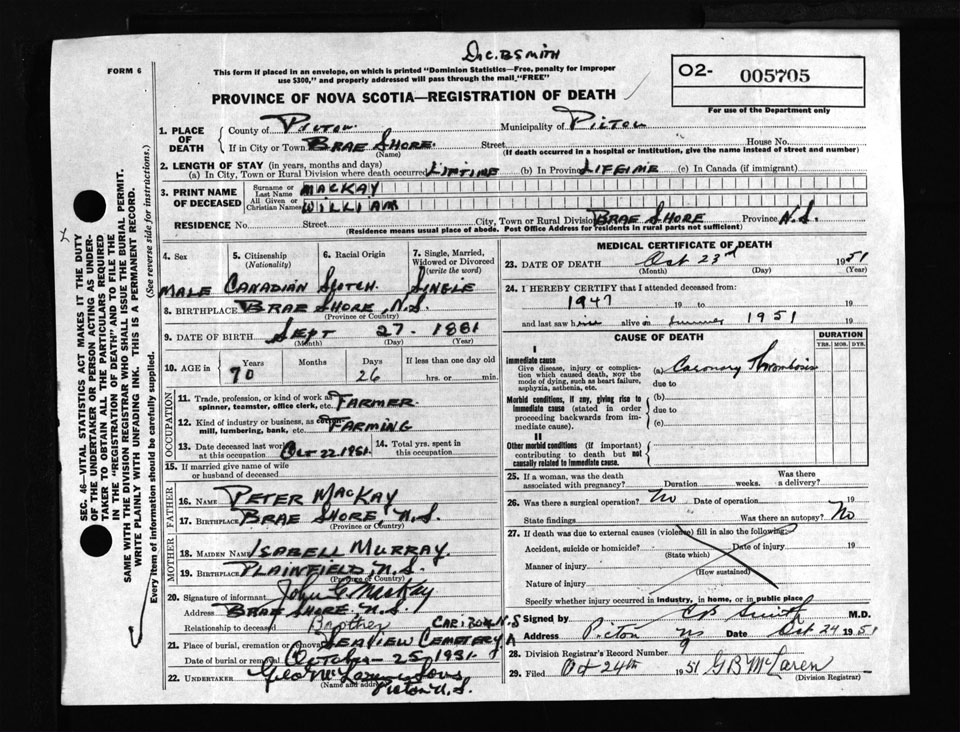 Dr. C. B. SMITH
FORM 6
This form if placed in an envelope, on which is printed "Dominion Statistics—Free, penalty for improper
use $300," and properly addressed will pass through the mail "FREE"
O2- 005705
For use of the Department only
PROVINCE OF NOVA SCOTIA—REGISTRATION OF DEATH
1. PLACE OF DEATH
County of PICTOU Municipality of PICTOU
If in City or Town BRAE SHORE. Street House No.
(Name) (If death occurred in a hospital or institution, give the name instead of street and number)
2. LENGTH OF STAY (in years, months and days)
(a) In City, Town or Rural Division where death occurred LIFTIME (b) In Province LIFEIME (c) In Canada (if immigrant)
3. PRINT NAME OF DECEASED
Surname or Last Name MACKAY
All Given or Christian Names WILLIAM
RESIDENCE No. Street City, Town or Rural Division BRAE SHORE Province N.S.
(Residence means usual place of abode. Post Office Address for residents in rural parts not sufficient)
4. Sex
MALE
5. Citizenship
(Nationality)
CANADIAN
6. Racial Origin
SCOTCH.
7. Single, Married, Widowed or Divorced
(write the word)
SINGLE
8. BIRTHPLACE BRAE SHORE, N.S.
(Province or Country)
9. DATE OF BIRTH SEPT 27. 1881
(Month) (Day) (Year)
10. AGE in Years Months Days If less than one day old
70 26 hrs. or min.
OCCUPATION
11. Trade, profession, or kind of work as
spinner, teamster, office clerk, etc. FARMER.
12. Kind of industry or business, as cotton
mill, lumbering, bank, etc. FARMING
13. Date deceased last worked
at this occupation Oct 22. 1951.
14. Total yrs. spent in
this occupation
15. If married give name of wife
or husband of deceased
FATHER
16. NAME PETER MACKAY
17. BIRTHPLACE BRAE SHORE N.S.
(Province or Country)
MOTHER
18. MAIDEN NAME ISABELL MURRAY.
19. BIRTHPLACE PLAINFIELD, N.S.
(Province or Country)
20. Signature of informant John G MacKay
Address BRAE SHORE. N.S.
Relationship to deceased Brother
CARIBOU N.S
21. Place of burial, cremation or removal SEAVIEW CEMETERY
Date of burial or removal October — 25 1951.
22. UNDERTAKER Geo McLaren & Sons
(Name and address)
Pictou N.S.
MEDICAL CERTIFICATE OF DEATH
23. DATE OF DEATH Oct 23rd 1951
(Month) (Day) (Year)
24. I HEREBY CERTIFY that I attended deceased from:
1947 19 to 19
and last saw him alive on summer 1951 19
CAUSE OF DEATH
DURATION
YRS. MOS. DYS.
I
Immediate cause
Give disease, injury or complication which caused death, NOT the mode of dying, such as heart failure, asphyxia, asthenia, etc.
(a) Coronary Thrombosis
due to
Morbid conditions, if any, giving rise to immediate cause (stated in order proceeding backwards from immediate cause).
(b)
due to
(c)
II
Other morbid conditions (if important) contributing to death but not causally related to immediate cause.
25. If a woman, was the death
associated with pregnancy? Duration weeks. Was there a delivery?
26. Was there a surgical operation? No Date of operation 19
State findings Was there an autopsy? No
27. If death was due to external causes (violence) fill in also the following:
Accident, suicide or homicide? Date of injury 19
(State which)
Manner of injury
(How sustained)
Nature of injury
Specify whether injury occurred in industry, in home, or in public place
Signed by CB Smith M.D.
Address Pictou NS Date Oct 24 1951
28. Division Registrar's Record Number 9
29. Filed Oct 24th 1951 G B McLaren
(Division Registrar)
SEC. 46—VITAL STATISTICS ACT MAKES IT THE DUTY
OF THE UNDERTAKER OR PERSON ACTING AS UNDER-
TAKER TO OBTAIN ALL THE PARTICULARS REQUIRED
IN THE "REGISTRATION OF DEATH" AND TO FILE THE
SAME WITH THE DIVISION REGISTRAR WHO SHALL ISSUE THE BURIAL PERMIT.
WRITE PLAINLY WITH UNFADING INK. THIS IS A PERMANENT RECORD.
Every item of information should be carefully supplied. (See reverse side for instructions.)